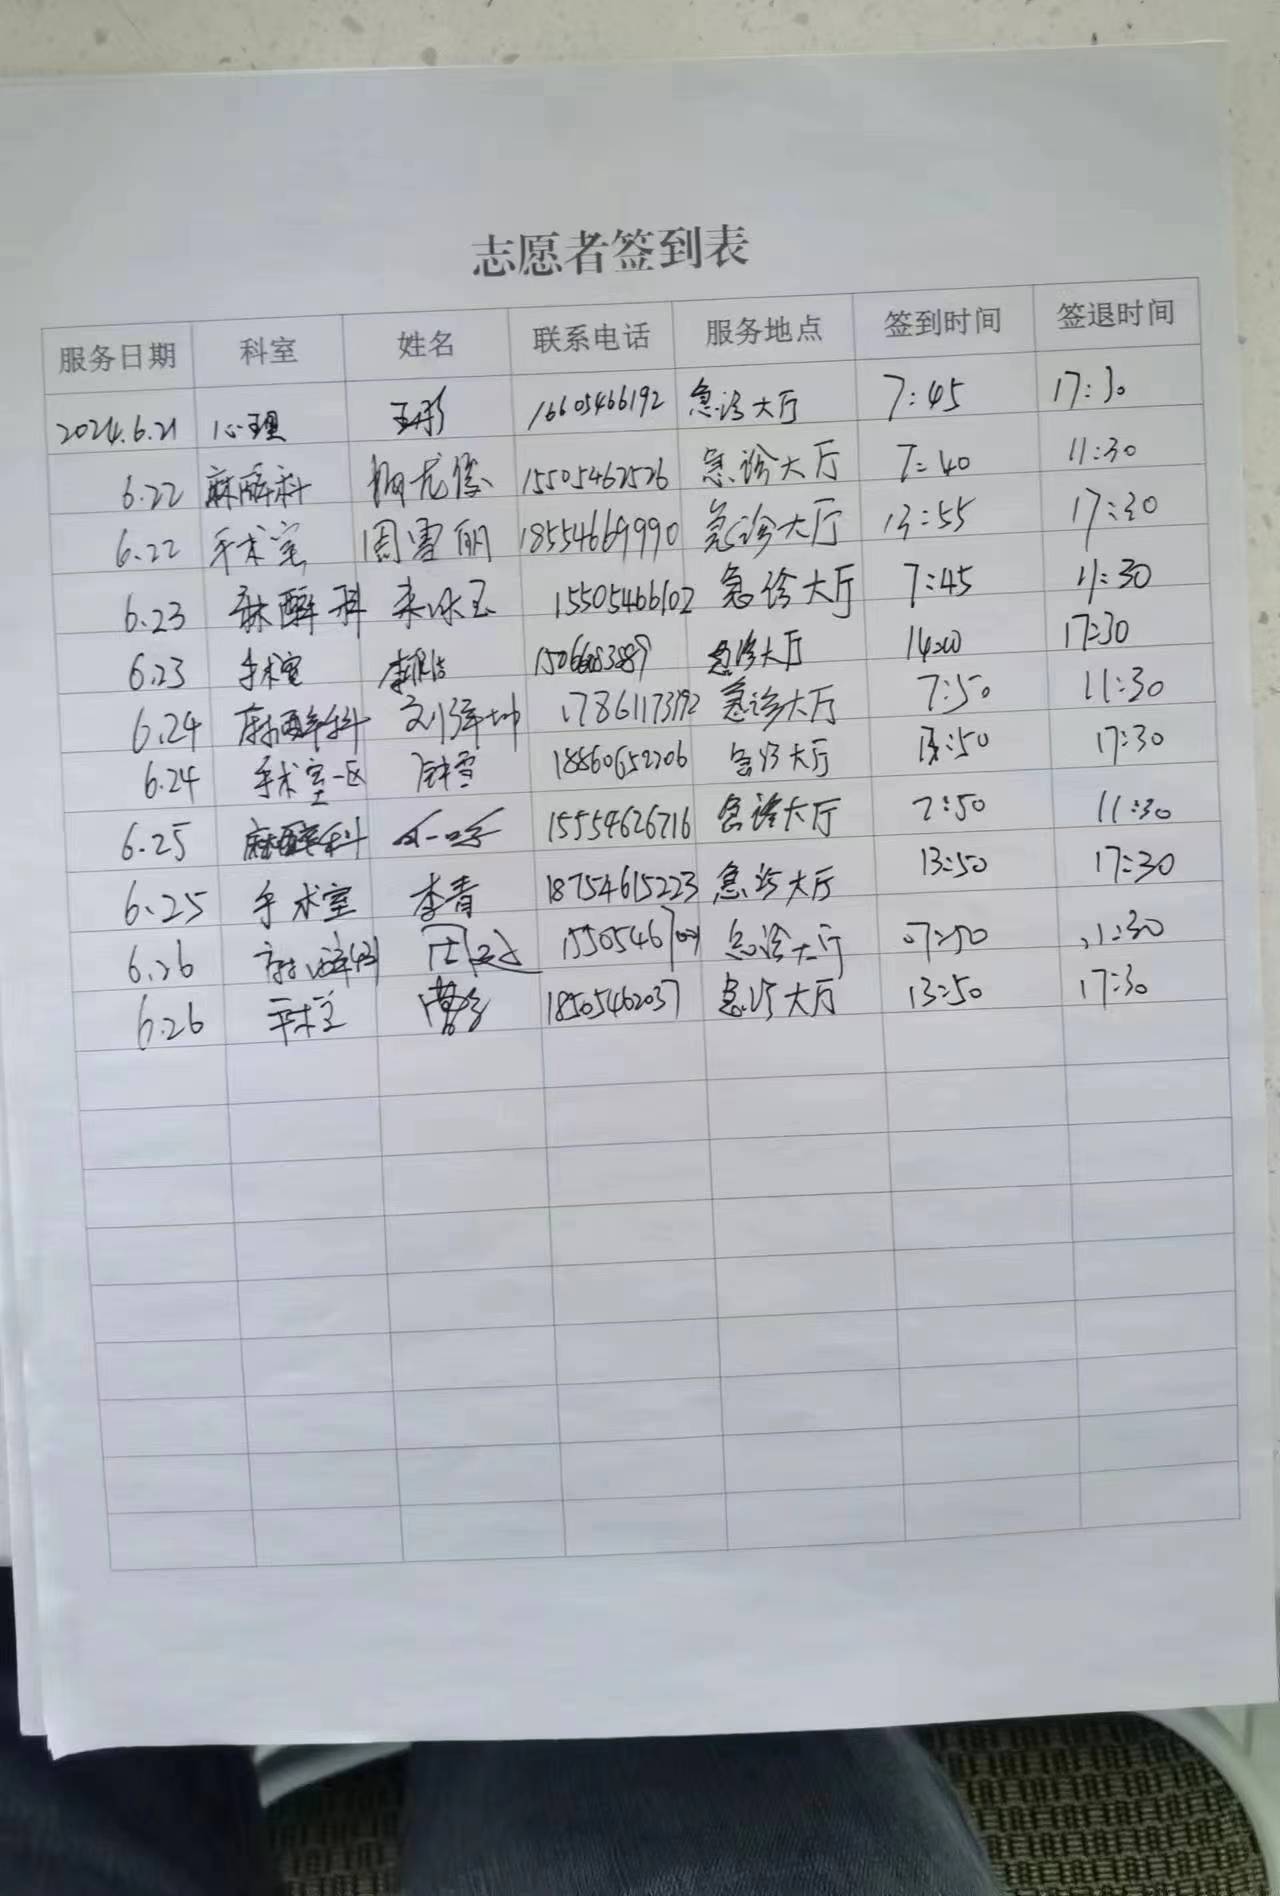 志愿者签到表
服务日期 科室 姓名 联系电话 服务地点 签到时间 签退时间
2024.6.21 心理 王彤 16605466192 急诊大厅 7:45 17:30
6.22 麻醉科 15505462526 急诊大厅 7:40 11:30
6.22 手术室 周雪丽 18554669990 急诊大厅 13:55 17:30
6.23 麻醉科 15505466102 急诊大厅 7:45 11:30
6.23 手术室 急诊大厅 14:00 17:30
6.24 麻醉科 17861173192 急诊大厅 7:50 11:30
6.24 手术室一区 18860652206 急诊大厅 13:50 17:30
6.25 麻醉科 15554626716 急诊大厅 7:50 11:30
6.25 手术室 李青 18754615223 急诊大厅 13:50 17:30
6.26 麻醉科 急诊大厅 07:50 11:30
6.26 手术室 18505462037 急诊大厅 13:50 17:30